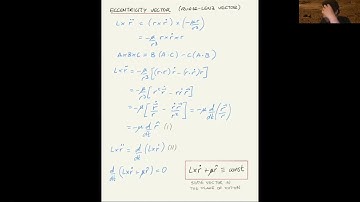 ECCENTRICITY VECTOR (RUNGE-LENZ VECTOR)
L×r̈ = (r×ṙ)×(-μr/r³)
= -μ/r³ r×ṙ×r
A×B×C = B(A·C) - C(A·B)
L×r̈ = -μ/r³ [(r·r)ṙ - (r·ṙ)r]
= -μ/r³ [r²ṙ - rṙr̄]
= -μ [ṙ/r - ṙr̄/r²] = -μ d/dt (r̄/r)
= -μ d/dt r̂ (I)
L×r̈ = d/dt (L×ṙ) (II)
d/dt (L×ṙ + μr̂) = 0
L×ṙ + μr̂ = const
VECTOR IN
THE PLANE OF MOTION